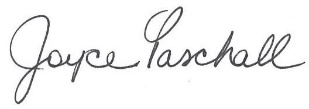 Joyce Paschall